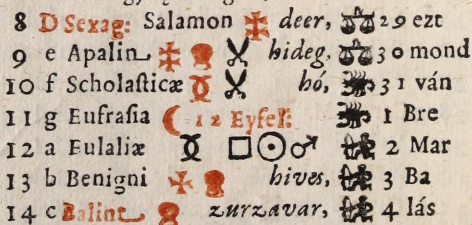 8 D Sexag: Salamon deer, 29 ezt
9 e Apalin hideg, 30 mond
10 f Scholaſticæ hó, 31 ván
11 g Eufraſia 12 Eyfel: 1 Bre
12 a Eulaliæ 2 Mar
13 b Benigni hives, 3 Ba
14 c Balint zurzavar, 4 lás